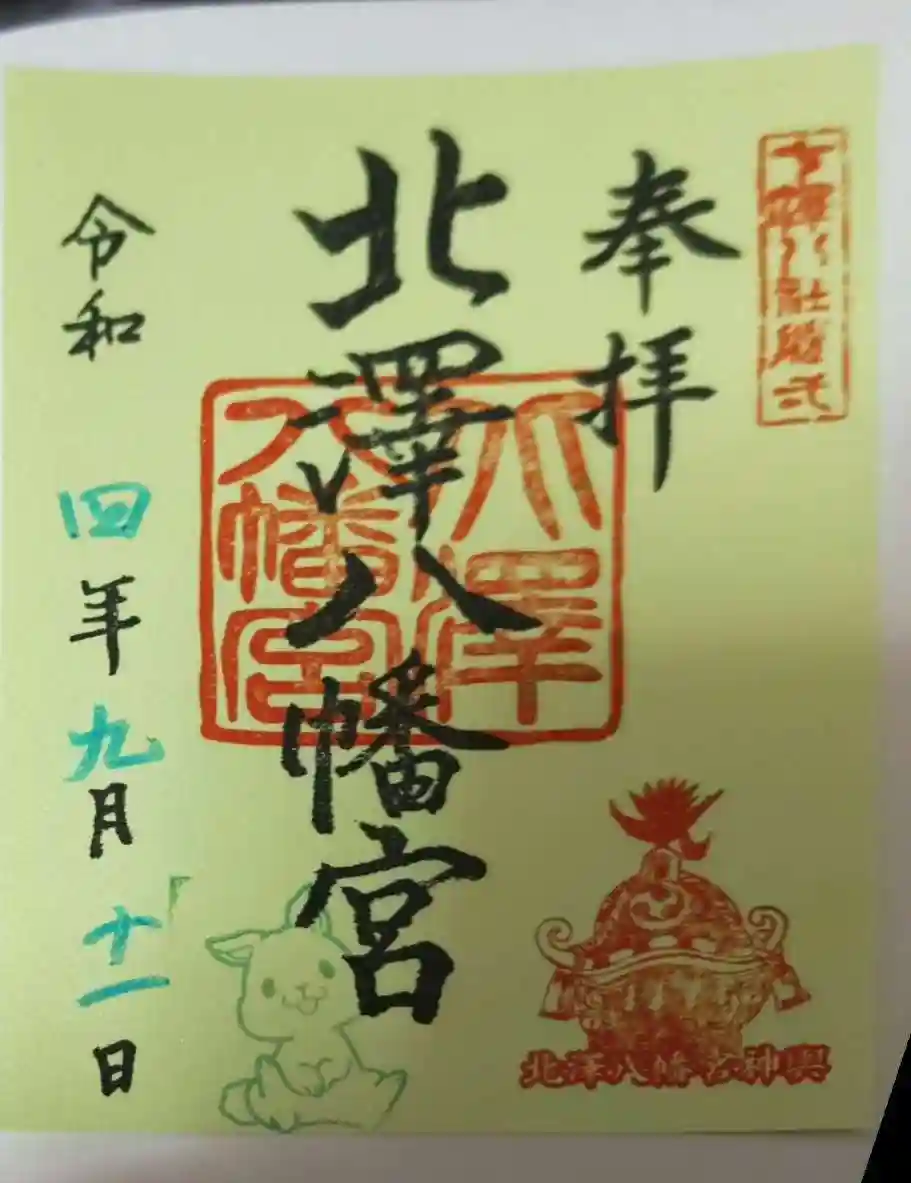 七澤八社随弌
奉拝
北澤八幡宮
北澤
八幡宮
北澤八幡宮神輿
令和四年九月十一日